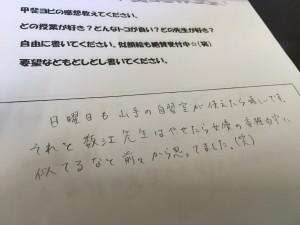 甲斐ヨビの感想教えてください。
どの授業が好き？どんなトコが良い？どの先生が好き？
自由に書いてください。似顔絵も絶賛受付中☆(笑)
要望などもどしどし書いてください。
日曜日も山手の自習室が使えたら嬉しいです。
それと数江先生はやせたら女優の吉瀬
似てるなと前々から思ってました。(笑)